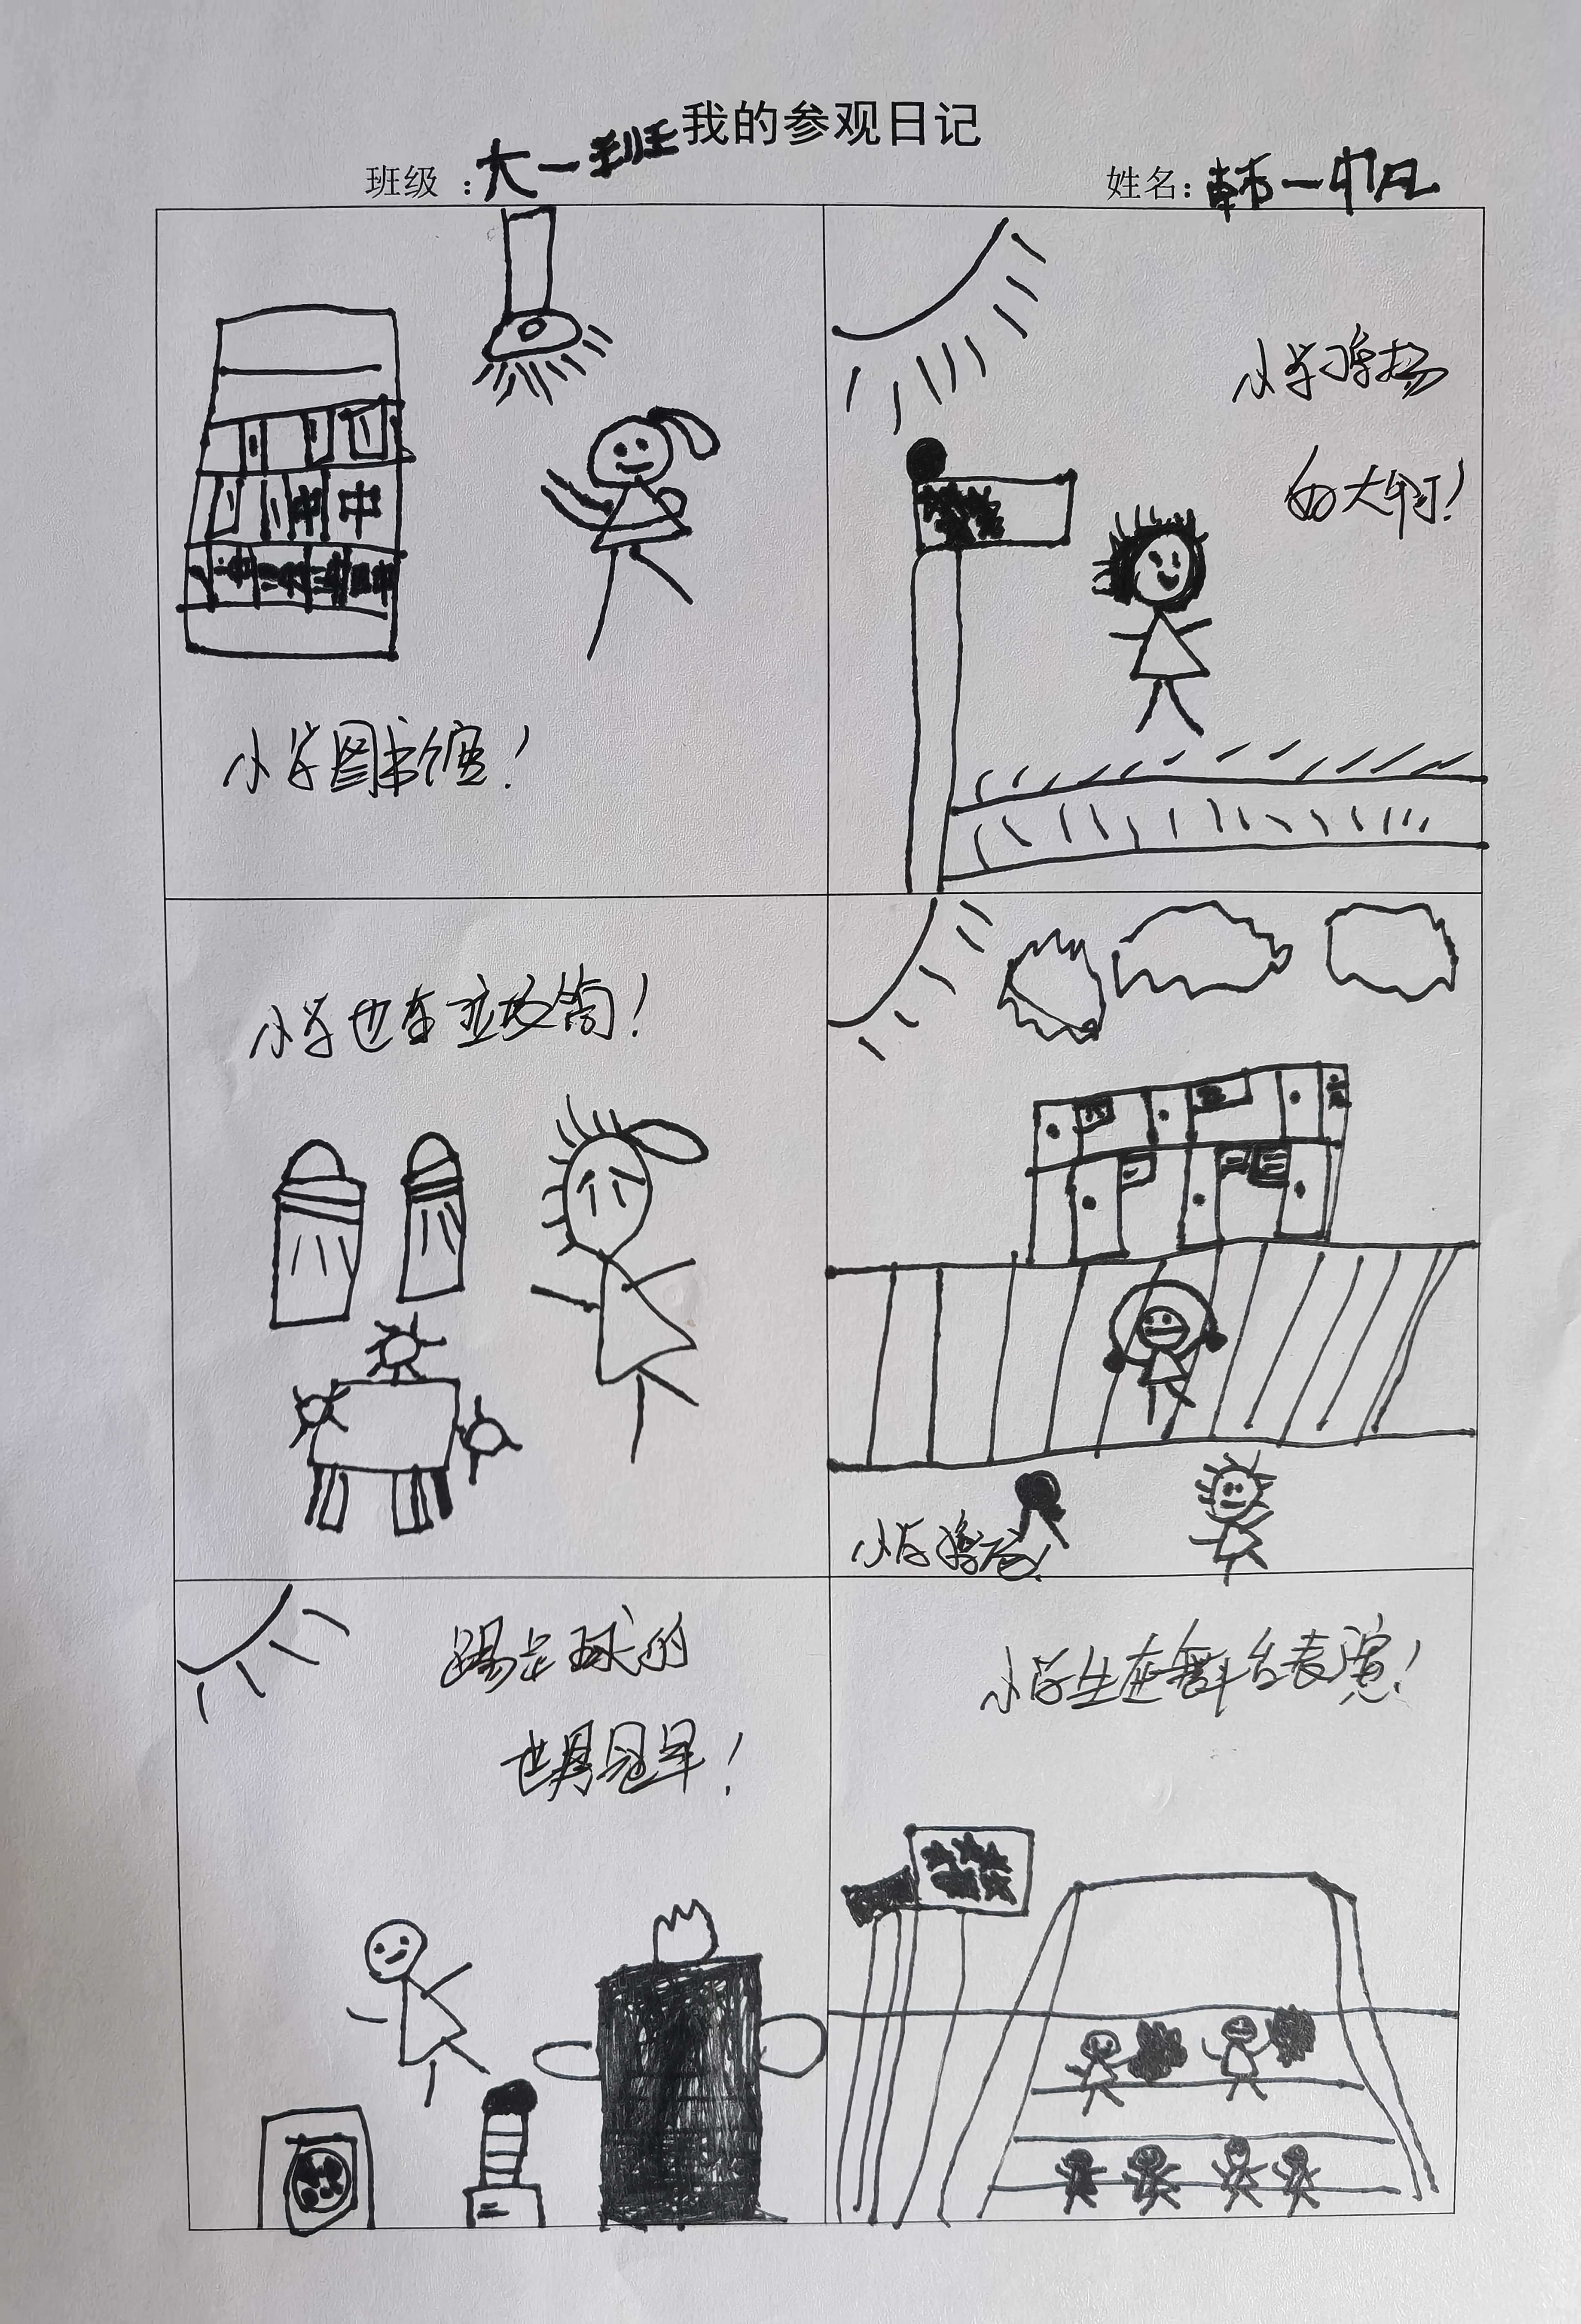 我的参观日记
班级：大一班
姓名：韩一帆
小学图书馆！
小学飘扬
的大
小学也有垃圾筒！
小学
踢足球的
世界冠军！
小学生在舞台表演！